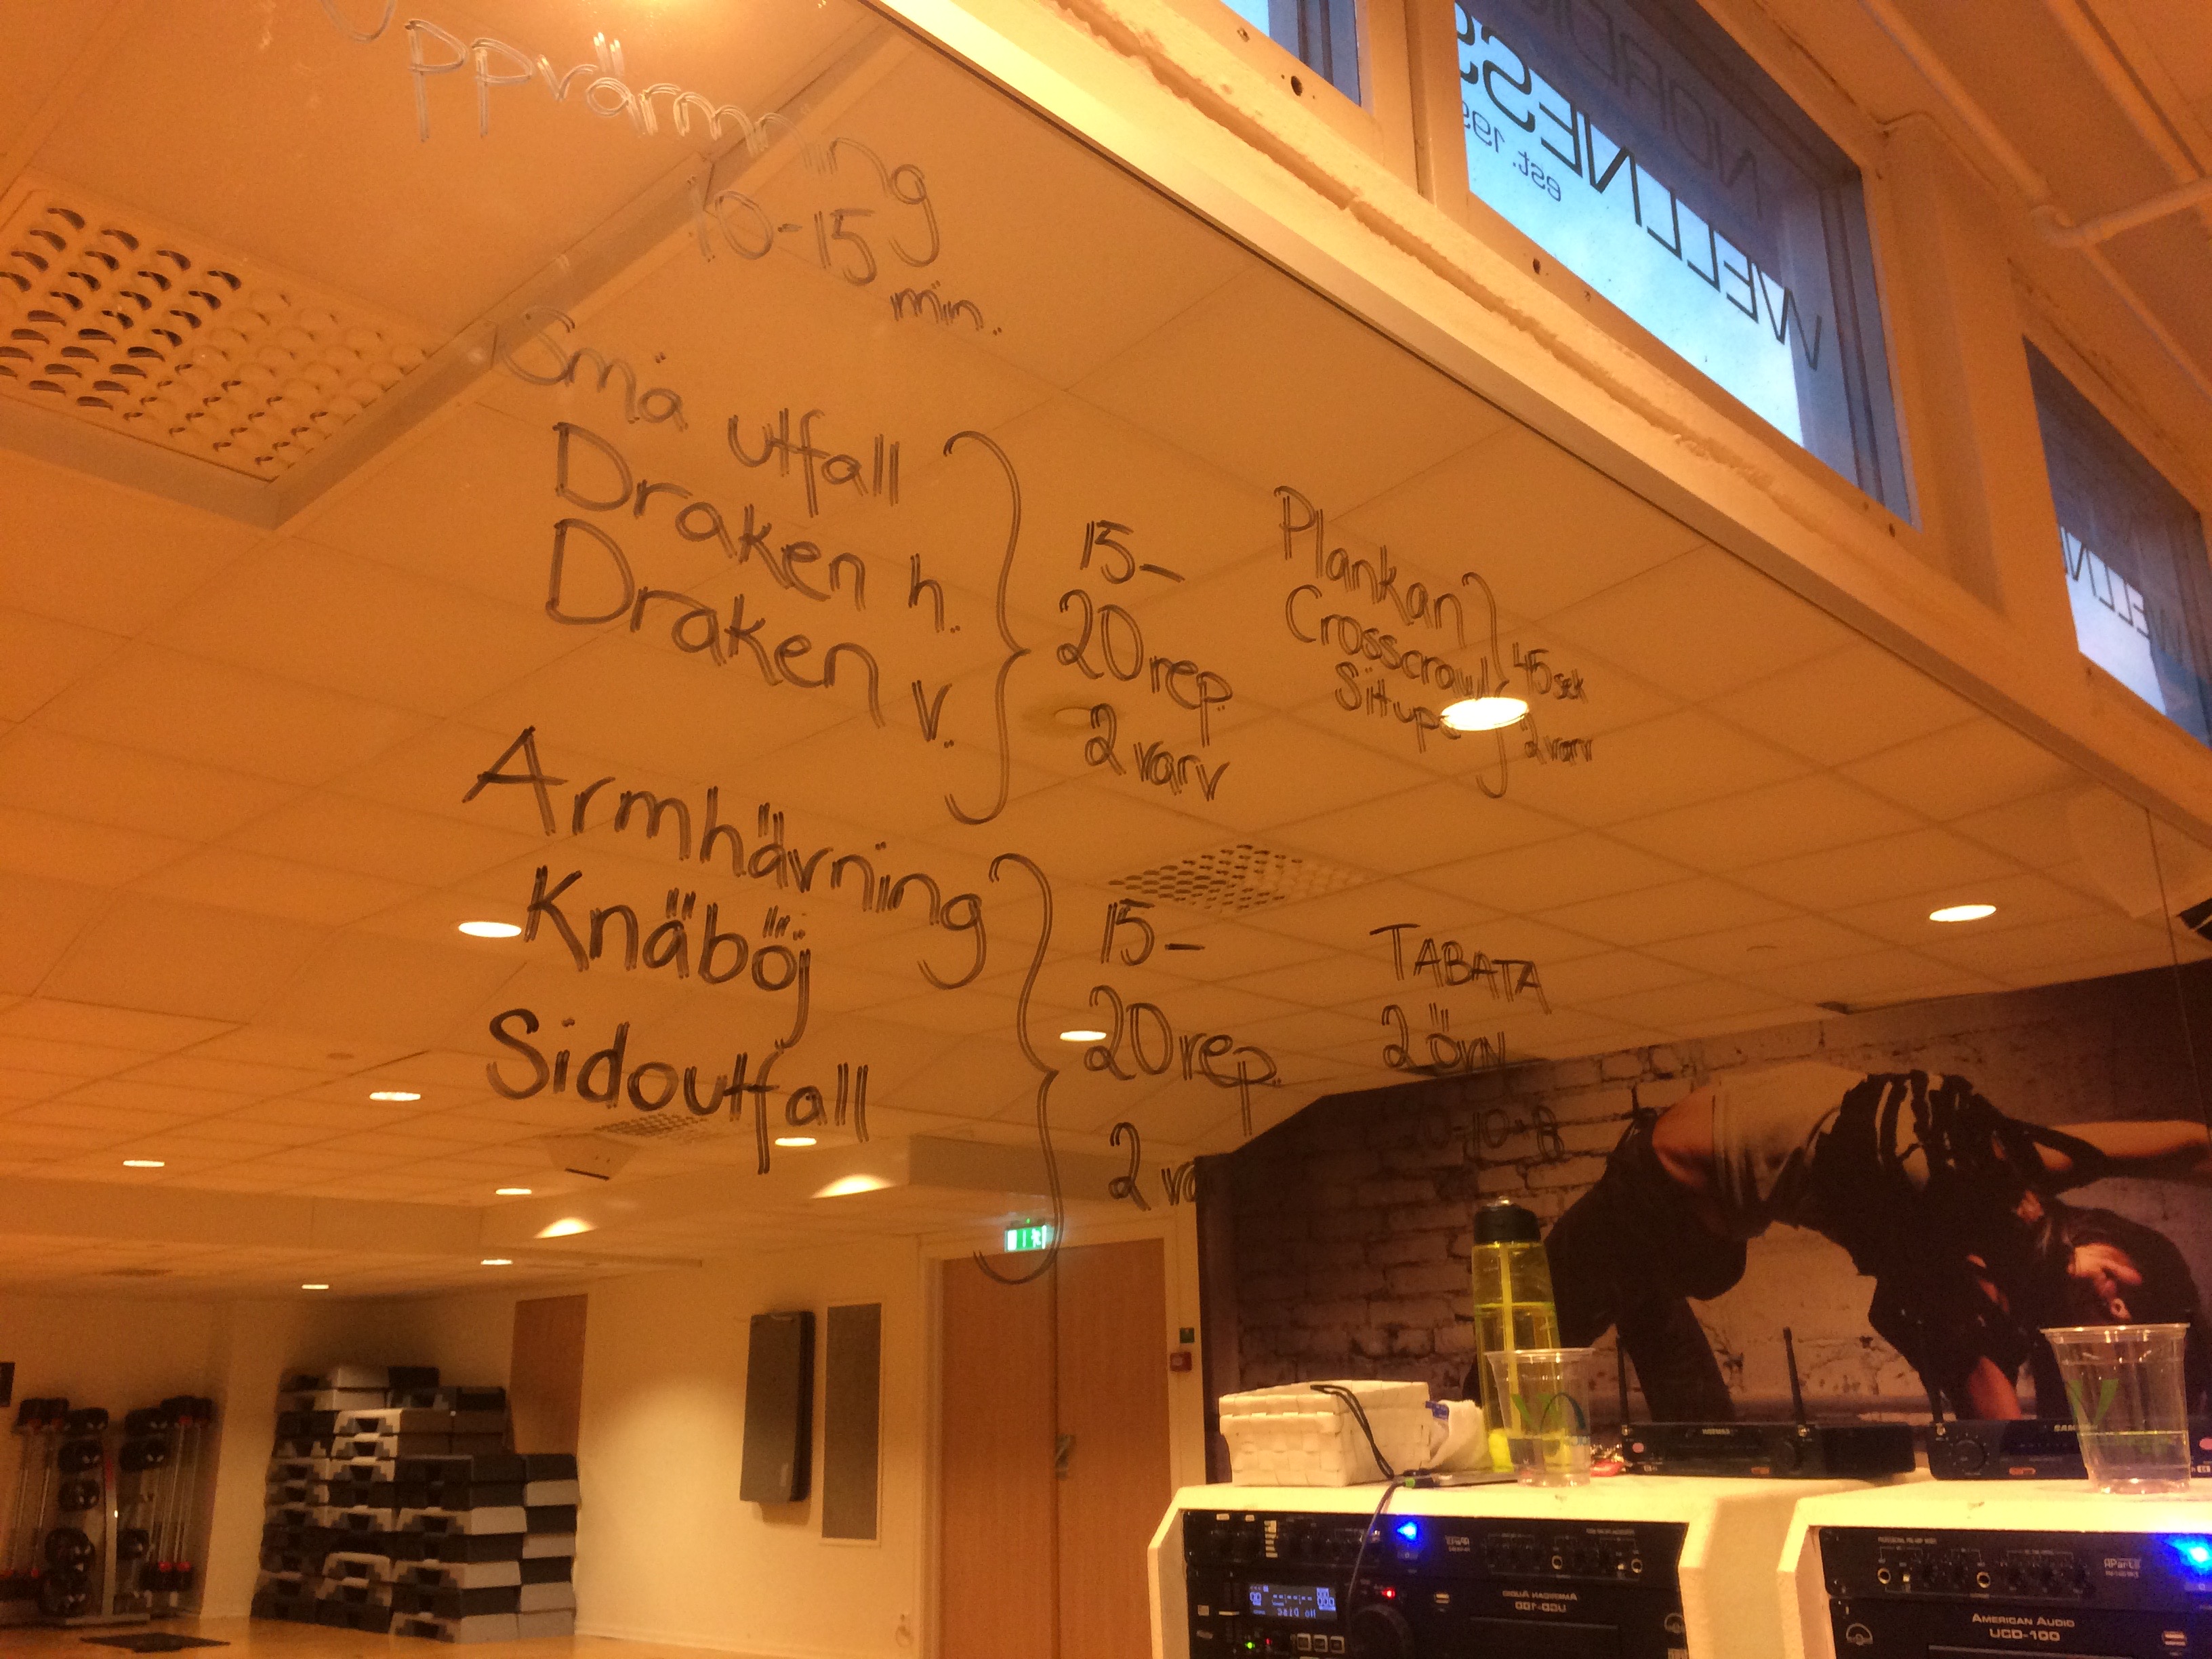 Uppvärmning
10-15
min.
Små utfall
Draken h.
Draken v.
15-
20 rep.
2 varv
Plankan
Crosscrawl
Situps
45 sek
2 varv
Armhävning
Knäböj
Sidoutfall
15-
20 rep.
2 va
TABATA
2 övn
20-10*8
NORDIC
WELLNESS
est. 199
WELLNE
No Disc
AMERICAN AUDIO
UCD-100
AMERICAN AUDIO
UCD-100